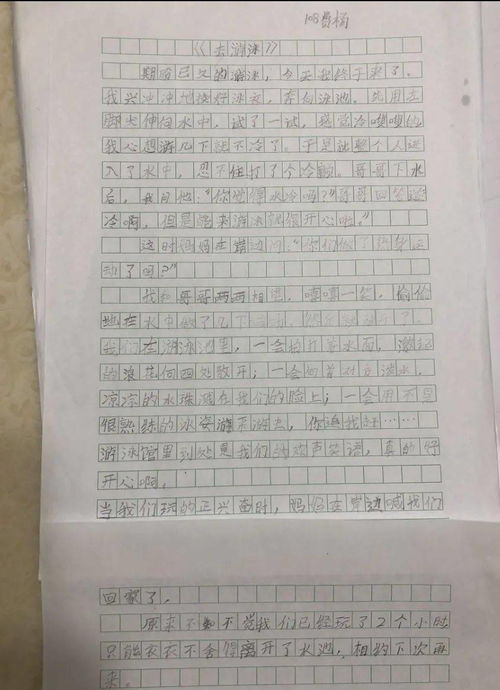 《去游泳》
期盼已久的游泳，今天我终于来了。
我兴冲冲地换好泳衣，奔向泳池。先用左
脚尖伸向水中，试了一试，感觉冷嗖嗖的
我心想游几下就不冷了。于是就整个人进
入了水中，忍不住打了个冷颤。哥哥下水
后，我问他："你觉得水冷吗？"哥哥回答说
冷啊，但是能来游泳就很开心啦。"
这时妈妈在岸边问："你们做了热身运
动了吗？"
我和哥哥两两相望，嘻嘻一笑，偷偷
地在水中做了几下
我们在游泳池里，一会拍打着水面，激起
的浪花向四处散开；一会向着对方泼水，
凉凉的水珠洒在我们的脸上；一会用不是
很熟练的泳姿游来游去，你追我赶……
游泳馆里到处是我们的欢声笑语，真的好
开心啊。
当我们玩的正兴奋时，妈妈在岸边喊我们
回家了。
原来不知不觉我们已经玩了2个小时
只能衣衣不舍得离开了水池，相约下次再
来。